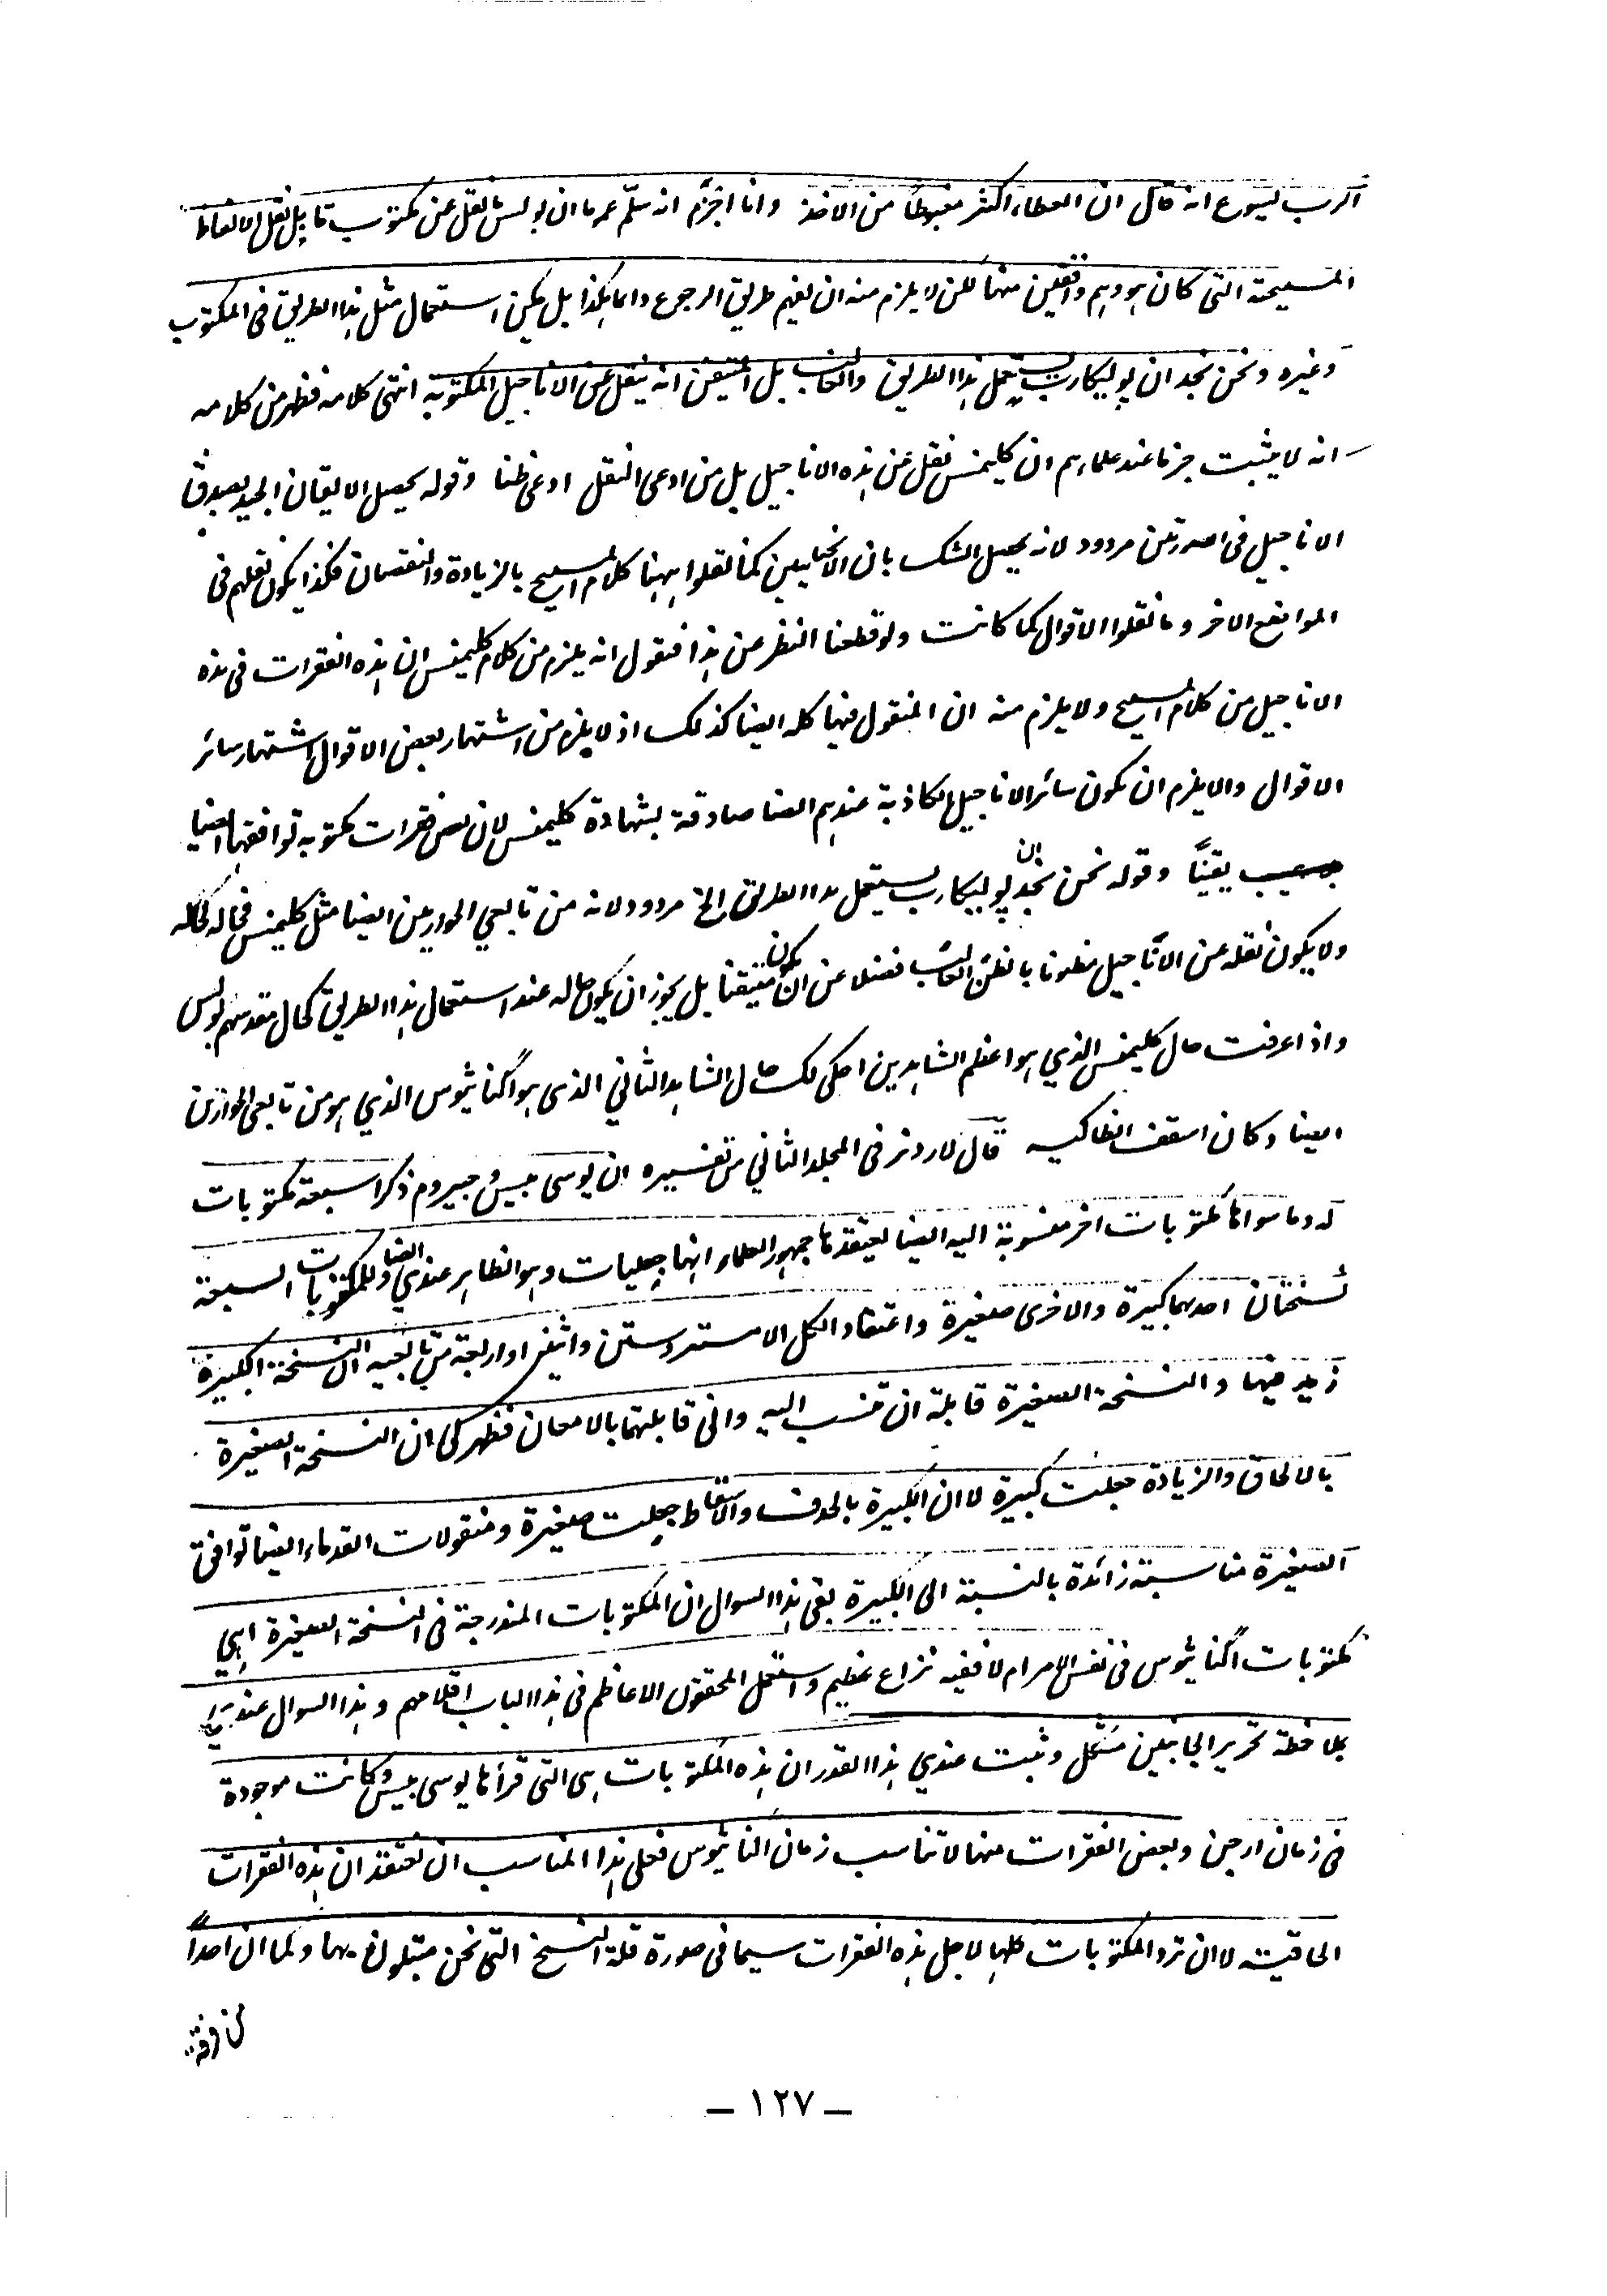 الرب ليسوع انه قال ان العطاء اكثر مغبوطًا من الاخذ وانا اجزم انه سلّم عموما ان بولس ما نقل عن مكتوب قابل نقل الالفاظ
المسيحية التى كان هو وهم واقفين عنها لكن لا يلزم منه ان يفهم طريق الرجوع دائما هكذا بل يمكن استعمال مثل هذا الطريق فى المكتوب
وغيره ونحن نجد ان پوليكارپ يستعمل هذا الطريق والغالب بل المتيقن انه ينقل عن الاناجيل المكتوبة انتهى كلامه فظهر من كلامه
انه لا يثبت جزما عند علماءهم ان كليمنس نقل عن هذه الاناجيل بل من ادعى النقل ادعى ظنا وقوله يحصل الايقان الجيد بصدق
الاناجيل فى الصورتين مردود لانه يحصل الشك بان الانجيليين كما نقلوا ههنا كلام المسيح بالزيادة والنقصان فكذا يكون نقلهم فى
المواضع الاخر وما نقلوا الاقوال كما كانت ولو قطعنا النظر عن هذا فنقول انه يلزم من كلام كليمنس ان هذه الفقرات فى هذه
الاناجيل من كلام المسيح ولا يلزم منه ان المنقول فيها كله ايضا كذلك اذ لا يلزم من اشتهار بعض الاقوال اشتهار سائر
الاقوال والا يلزم ان تكون سائر الاناجيل الكاذبة عندهم ايضا صادقة بشهادة كليمنس لان بعض فقرات مكتوبه توافقها ايضا
يقيناً وقوله نحن نجد ان پوليكارپ يستعمل هذا الطريق الخ مردود لانه من تابعي الحواريين ايضا مثل كليمنس فحاله كحاله
ولا يكون نقله عن الاناجيل مظنونا بالظن الغالب فضلا عن ان يكون متيقنا بل يجوز ان يكون حاله عند استعمال هذا الطريق كحال مقدسهم بولس
واذا عرفت حال كليمنس الذي هو اعظم الشاهدين احكى لك حال الشاهد الثاني الذى هو اگناثيوس الذي هو من تابعى الحواريين
ايضا وكان اسقف انطاكيه قال لاردنر فى المجلد الثاني من تفسيره ان يوسى بيس وجيروم ذكرا سبعة مكتوبات
له وما سواها مكتوبات اخر منسوبة اليه ايضا يعتقدها جمهور العلماء انها جعليات وهو الظاهر عندي ايضا وللمكتوبات السبعة
نسختان احدهما كبيرة والاخرى صغيرة واعتقاد الكل الا مستر وستن واثنين او اربعة من تابعيه ان النسخة الكبيرة
زيد فيها والنسخة الصغيرة قابلة ان تنسب اليه وانى قابلتهما بالامعان فظهر لى ان النسخة الصغيرة
بالالحاق والزيادة جعلت كبيرة لا ان الكبيرة بالحذف والاسقاط جعلت صغيرة ومنقولات القدماء ايضا توافق
الصغيرة مناسبة زائدة بالنسبة الى الكبيرة بقى هذا السوال ان المكتوبات المندرجة فى النسخة الصغيرة اهي
مكتوبات اگناثيوس فى نفس الامر ام لا ففيه نزاع عظيم واستعمل المحققون الاعاظم فى هذا الباب اقلامهم وهذا السوال عندى
بملاحظة تحرير الجانبين مشكل وثبت عندي هذا القدر ان هذه المكتوبات هى التى قرأها يوسى بيس وكانت موجودة
فى زمان ارجن وبعض الفقرات منها لا تناسب زمان اگناثيوس فعلى هذا المناسب ان نعتقد ان هذه الفقرات
الحاقية لا ان نرد المكتوبات كلها لاجل هذه الفقرات سيما فى صورة قلة النسخ التى نحن مبتلون بها وكما ان احداً
من فرقة
ـ ١٢٧ ـ